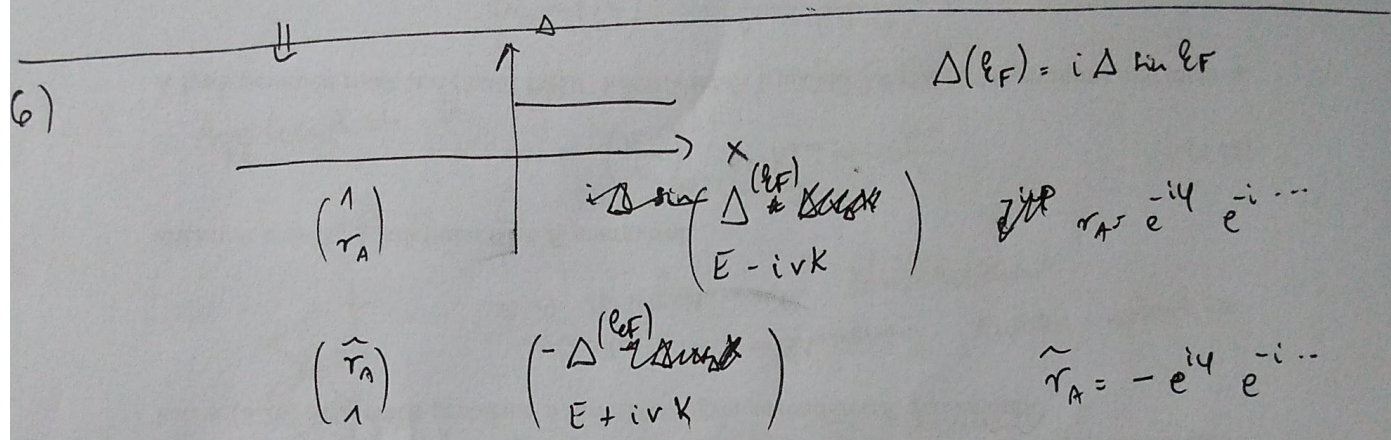 ⇓
Δ
Δ(k_F) = i Δ sin k_F
6)
x
(1 r_A)
(Δ(k_F) E - ivK)
r_A = e^{-iφ} e^{-i ...}
(r̃_A 1)
(-Δ(k_F) E + ivK)
r̃_A = - e^{iφ} e^{-i ..}